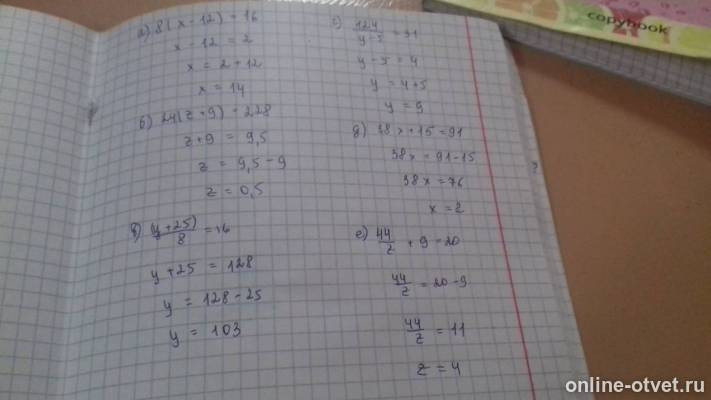 а) 8(x-12)=16
x-12=2
x=2+12
x=14
б) 24(z+9)=228
z+9=9,5
z=9,5-9
z=0,5
в) (y+25)/8=16
y+25=128
y=128-25
y=103
г) 124/y-5=31
y-5=4
y=4+5
y=9
д) 38x+15=91
38x=91-15
38x=76
x=2
е) 44/z+9=20
44/z=20-9
44/z=11
z=4
copybook
online-otvet.ru